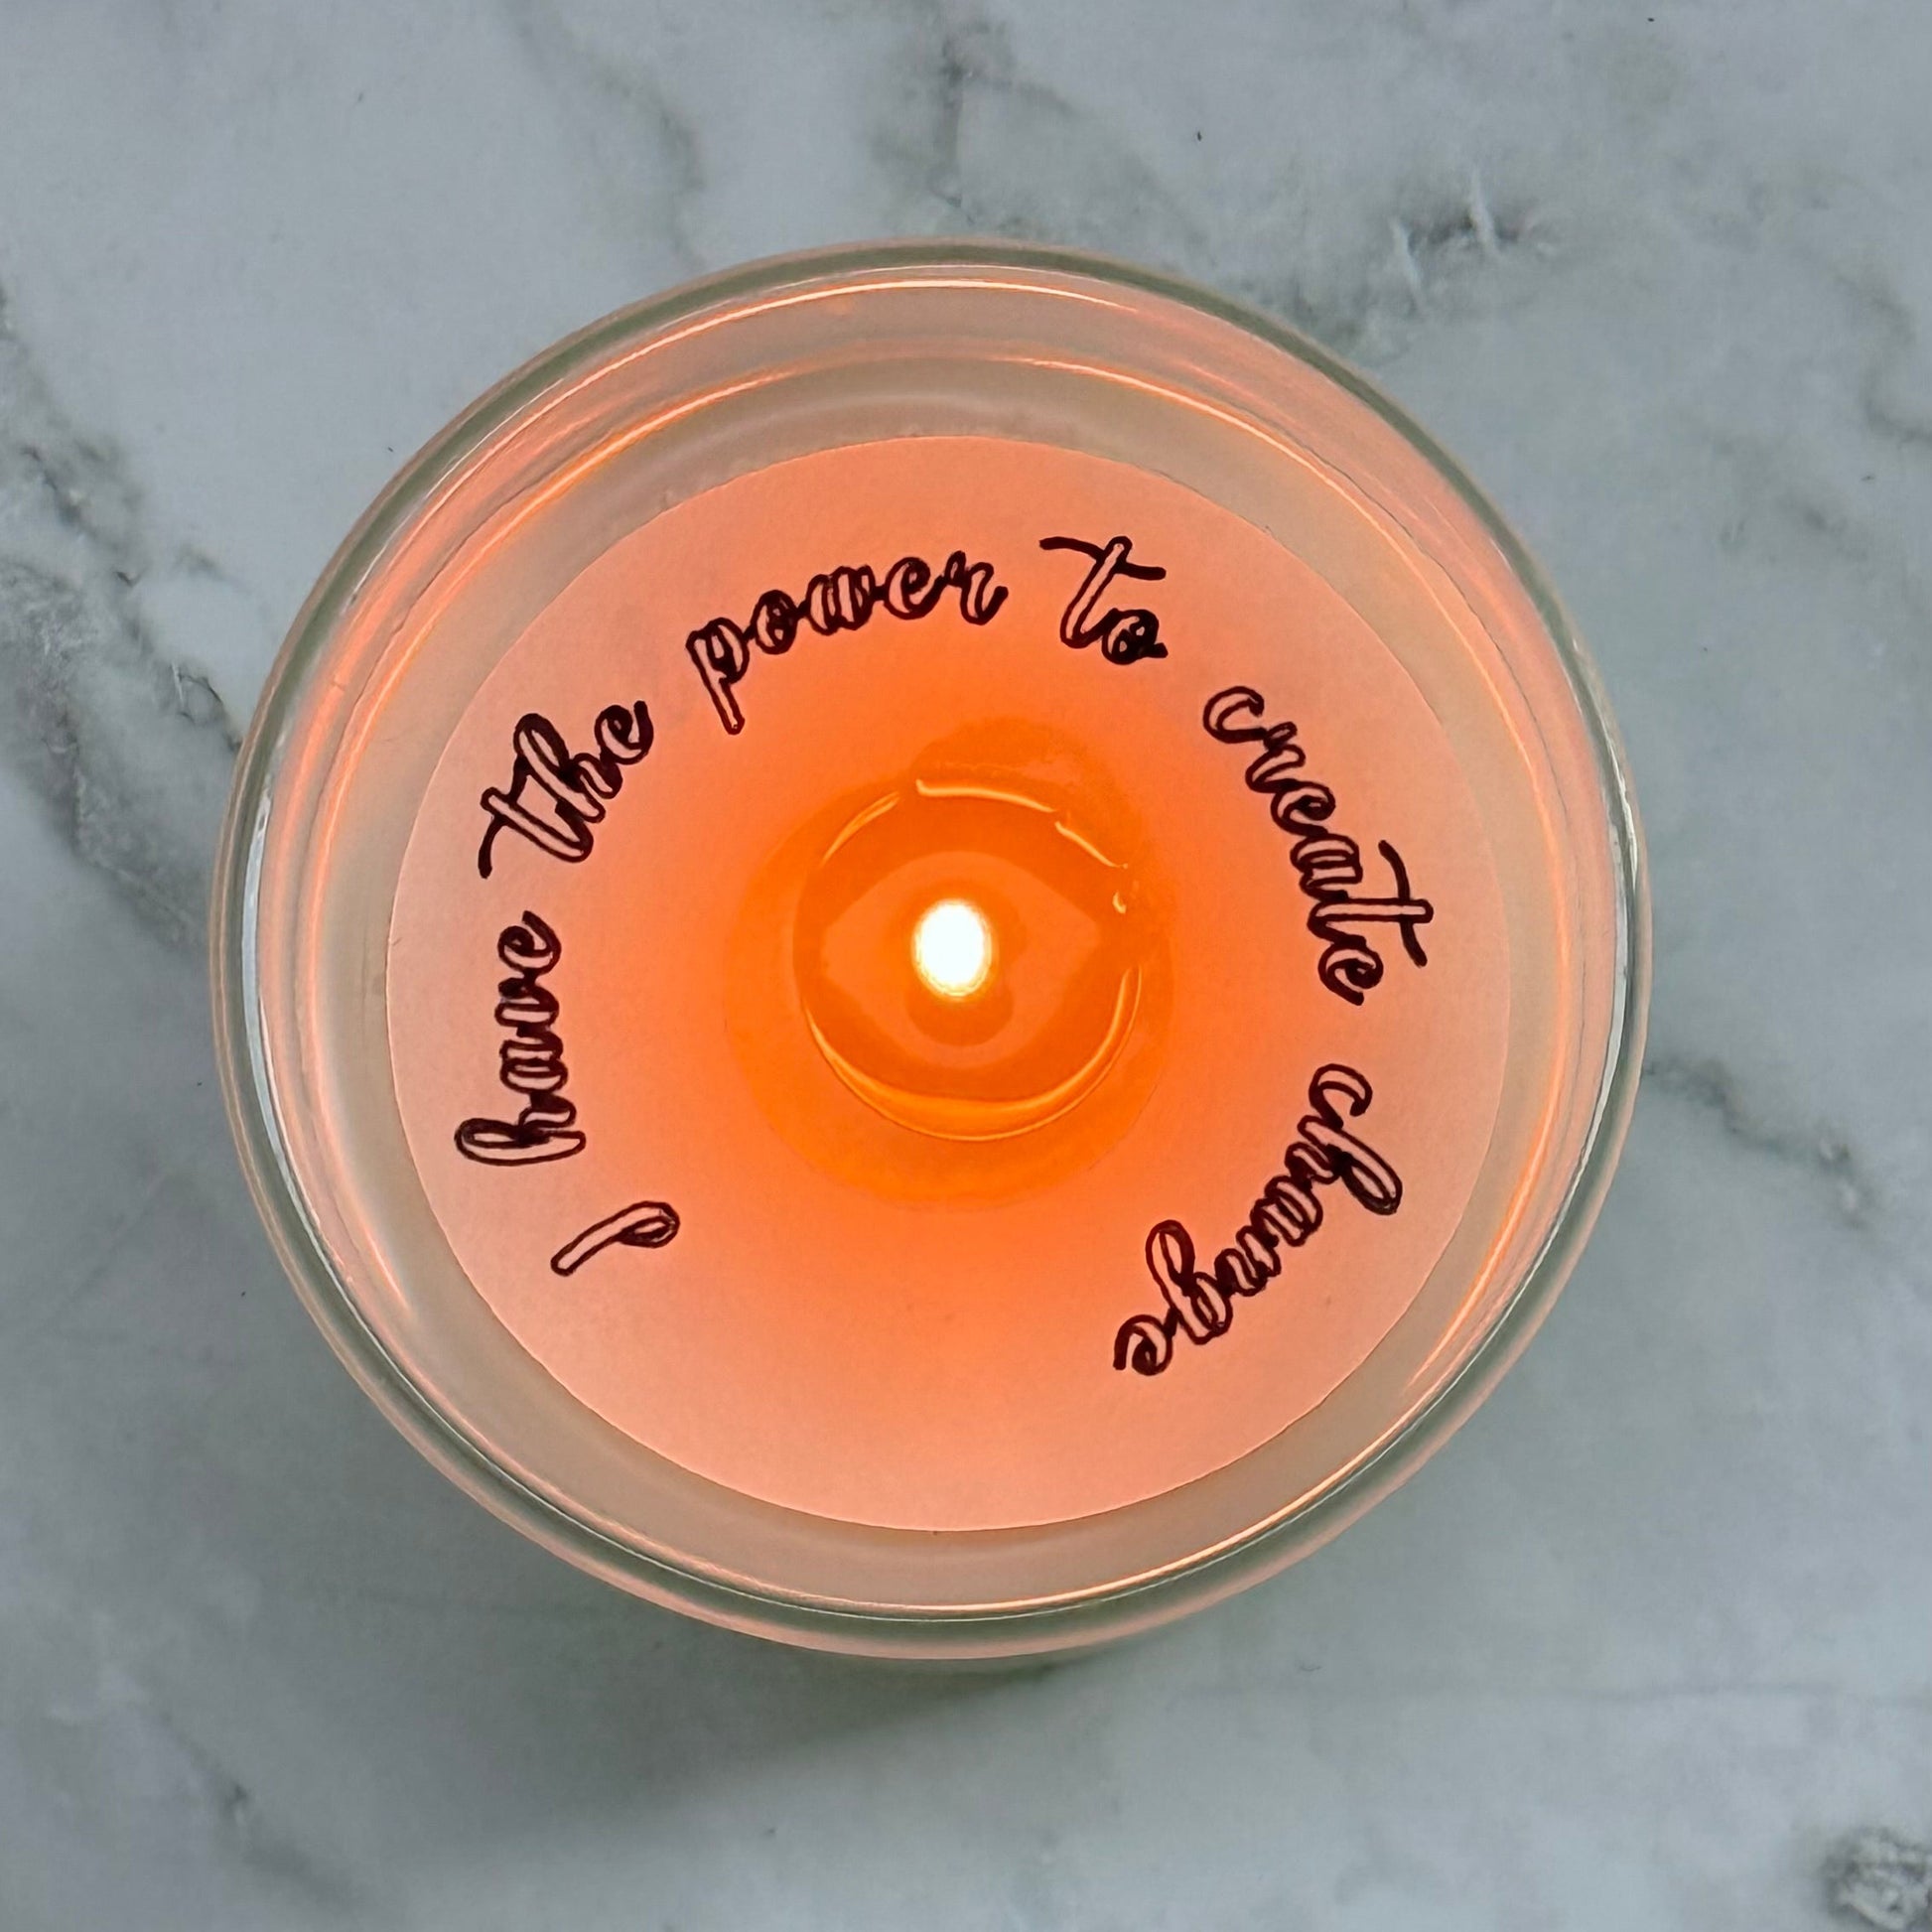 I have the power to create change